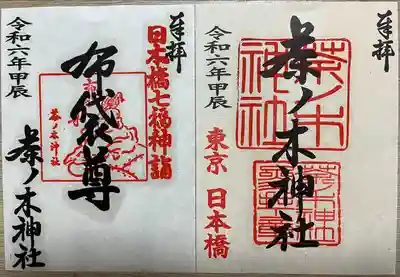 奉拝
茶ノ木神社
令和六年甲辰
東京 日本橋
奉拝
日本橋七福神詣
布代尊
茶ノ木神社
令和六年甲辰
茶ノ木神社